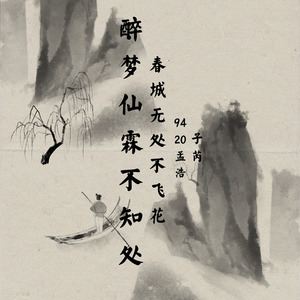 醉梦仙霖不知处
春城无处不飞花
9420孟浩
子芮